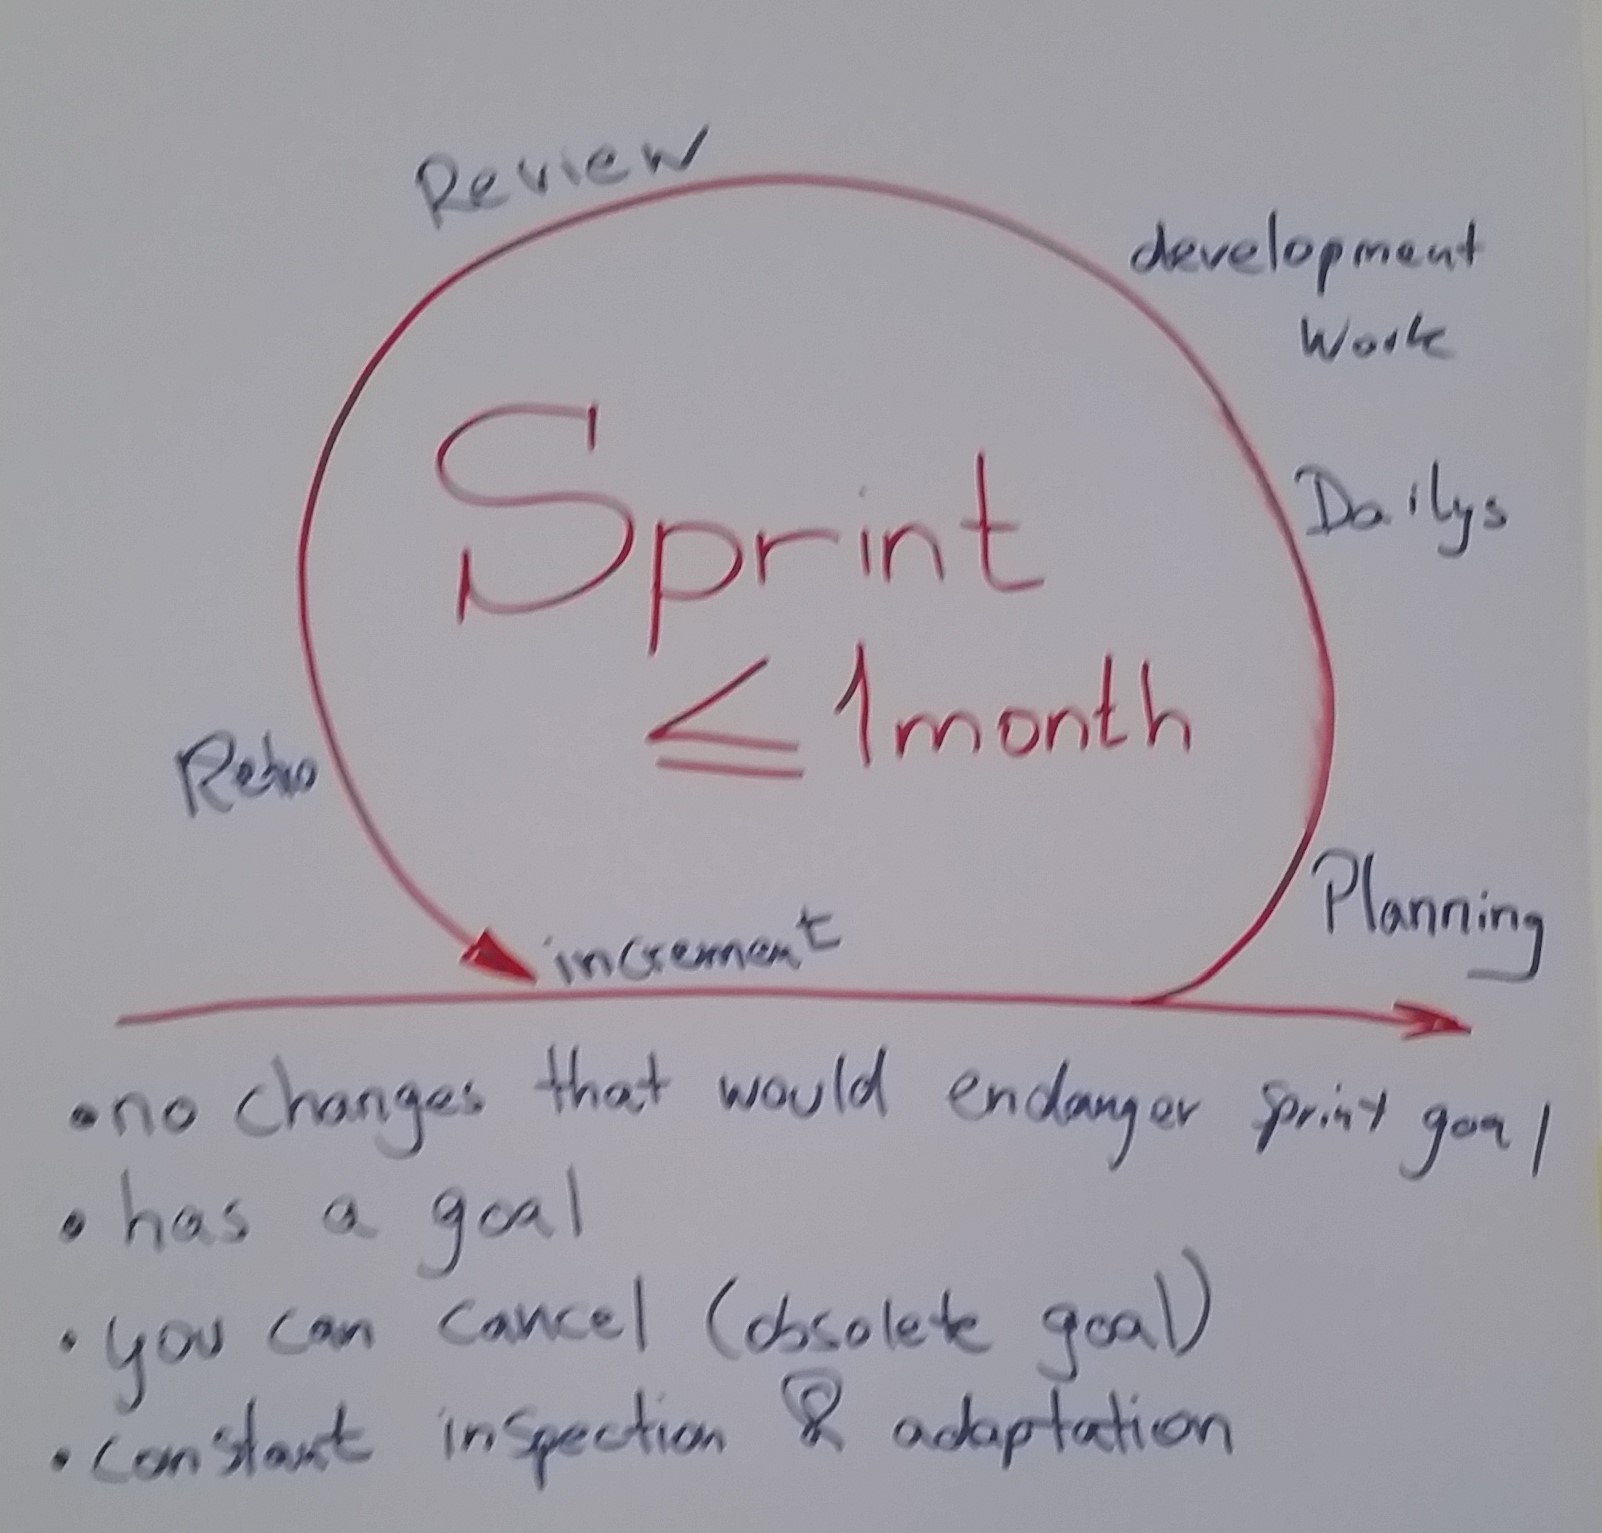 Review
development
Work
Dailys
Sprint
≤ 1 month
Retro
Planning
increment
• no changes that would endanger sprint goal
• has a goal
• you can cancel (obsolete goal)
• constant inspection & adaptation